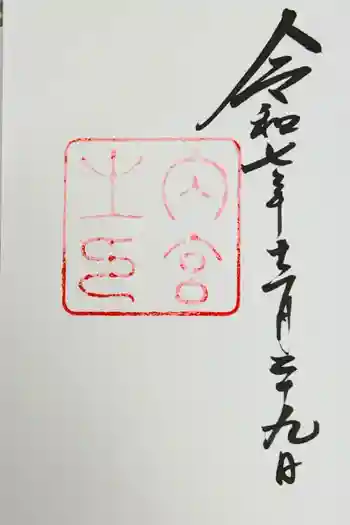 令和七年十一月二十九日
内宮
之印